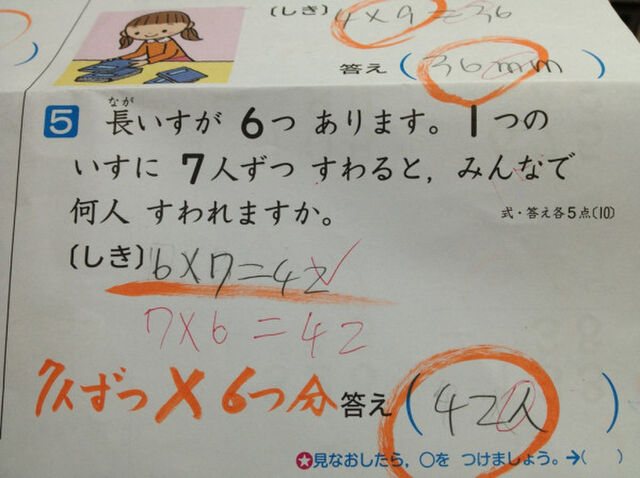 (しき) 4×9=36
答え (36mm)
5 長いすが 6つ あります。1つの
なが
いすに 7人ずつ すわると,みんなで
何人 すわれますか。
式・答え各5点(10)
(しき) 6×7=42
7×6=42
7人ずつ×6つ分 答え (42人)
★見なおしたら,○を つけましょう。→( )